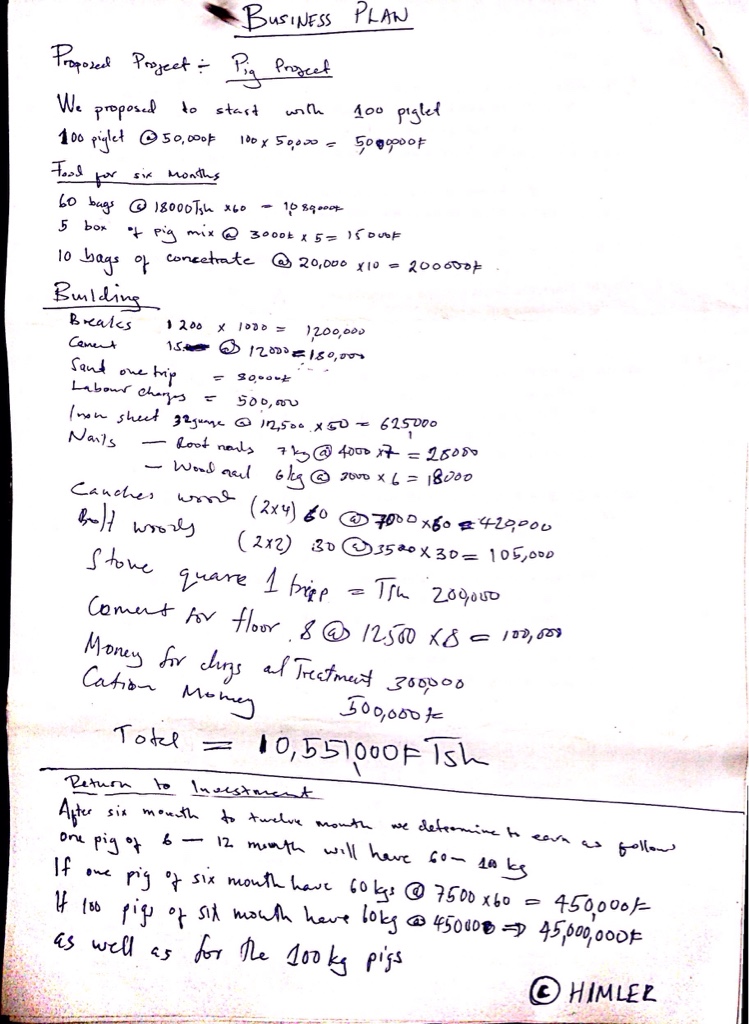 BUSINESS PLAN
Proposed Project ÷ Pig Project
We proposed to start with 100 piglet
100 piglet @ 50,000/= 100 x 50,000 = 5,000,000/=
Food for six months
60 bags @ 18000 Tsh x60 = 1,080,000/=
5 box of pig mix @ 3000/= x 5 = 15000/=
10 bags of concetrate @ 20,000 x10 = 200000/=
Building
Breaks 1200 x 1000 = 1,200,000
Cement 15 @ 12000 = 180,000
Sand one trip = 80,000/=
Labour charges = 500,000
Iron sheet 32gauge @ 12,500 x 50 = 625000
Nails — Roof nails 7kg @ 4000 x7 = 28000
— Wood nail 6kg @ 3000 x 6 = 18000
wood (2x4) 60 @ 7000 x60 = 420,000
woods (2x2) 30 @ 3500 x 30 = 105,000
Stone quare 1 tripp = Tsh 200,000
Cement for floor 8 @ 12500 x8 = 100,000
Money for and Treatment 300,000
Cation Money 500,000/=
Total = 10,551000/= Tsh
Return to Investment
After six mounth to twelve mounth we determine to earn as follow
one pig of 6 — 12 month will have 60 — 100 kg
If one pig of six mounth have 60 kgs @ 7500 x60 = 450,000/=
If 100 pigs of six mounth have 60kg @ 450000 => 45,000,000/=
as well as for the 100 kg pigs
© HIMLER